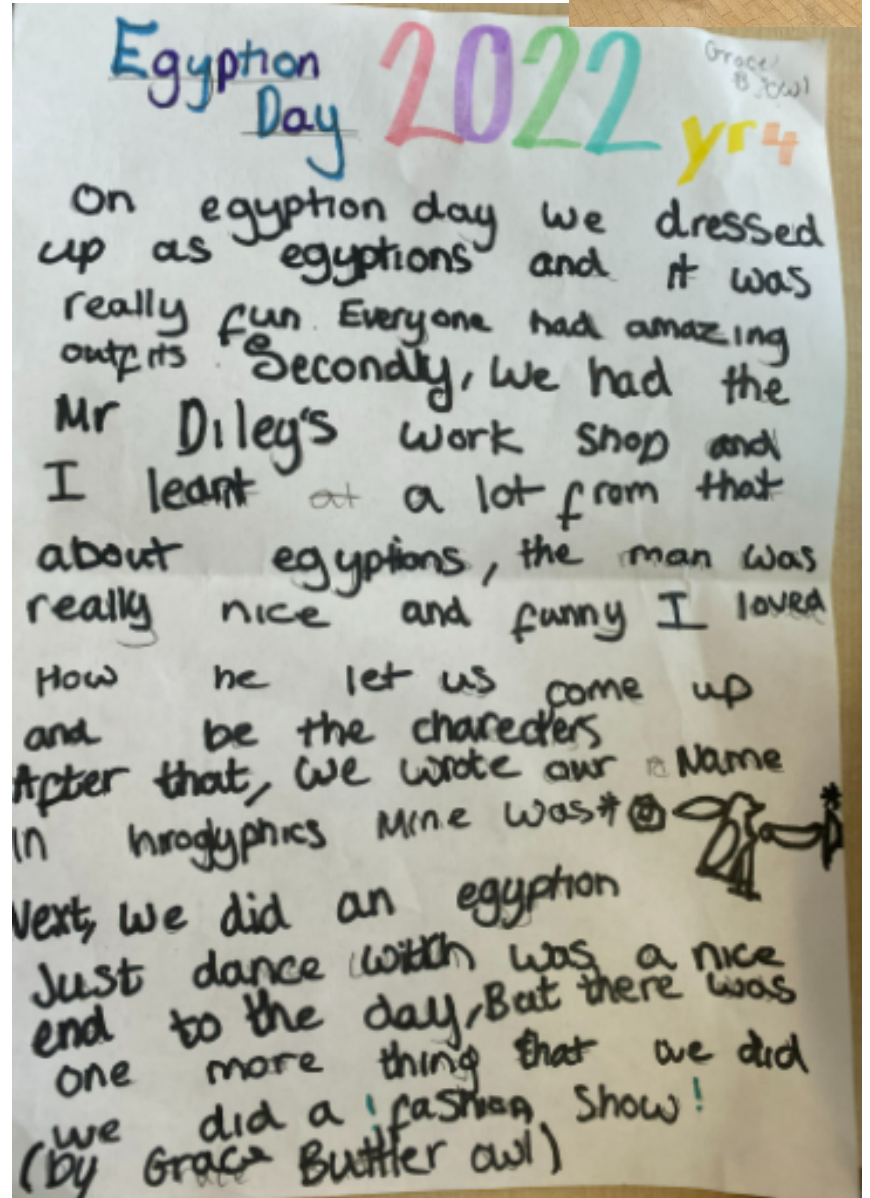 Egyption 2022
Day
Grace
B owl
yr4
On egyption day we dressed
up as egyptions and it was
really fun. Everyone had amazing
outfits. Secondly, we had the
Mr Diley's work shop and
I leant at a lot from that
about egyptions, the man was
really nice and funny I loved
How he let us come up
and be the charecters
After that, we wrote our Name
in hiroglyphics Mine was*
Next, we did an egyption
Just dance witch was a nice
end to the day, But there was
one more thing that we did
we did a ! fashion Show!
(by Grace Buttler owl)